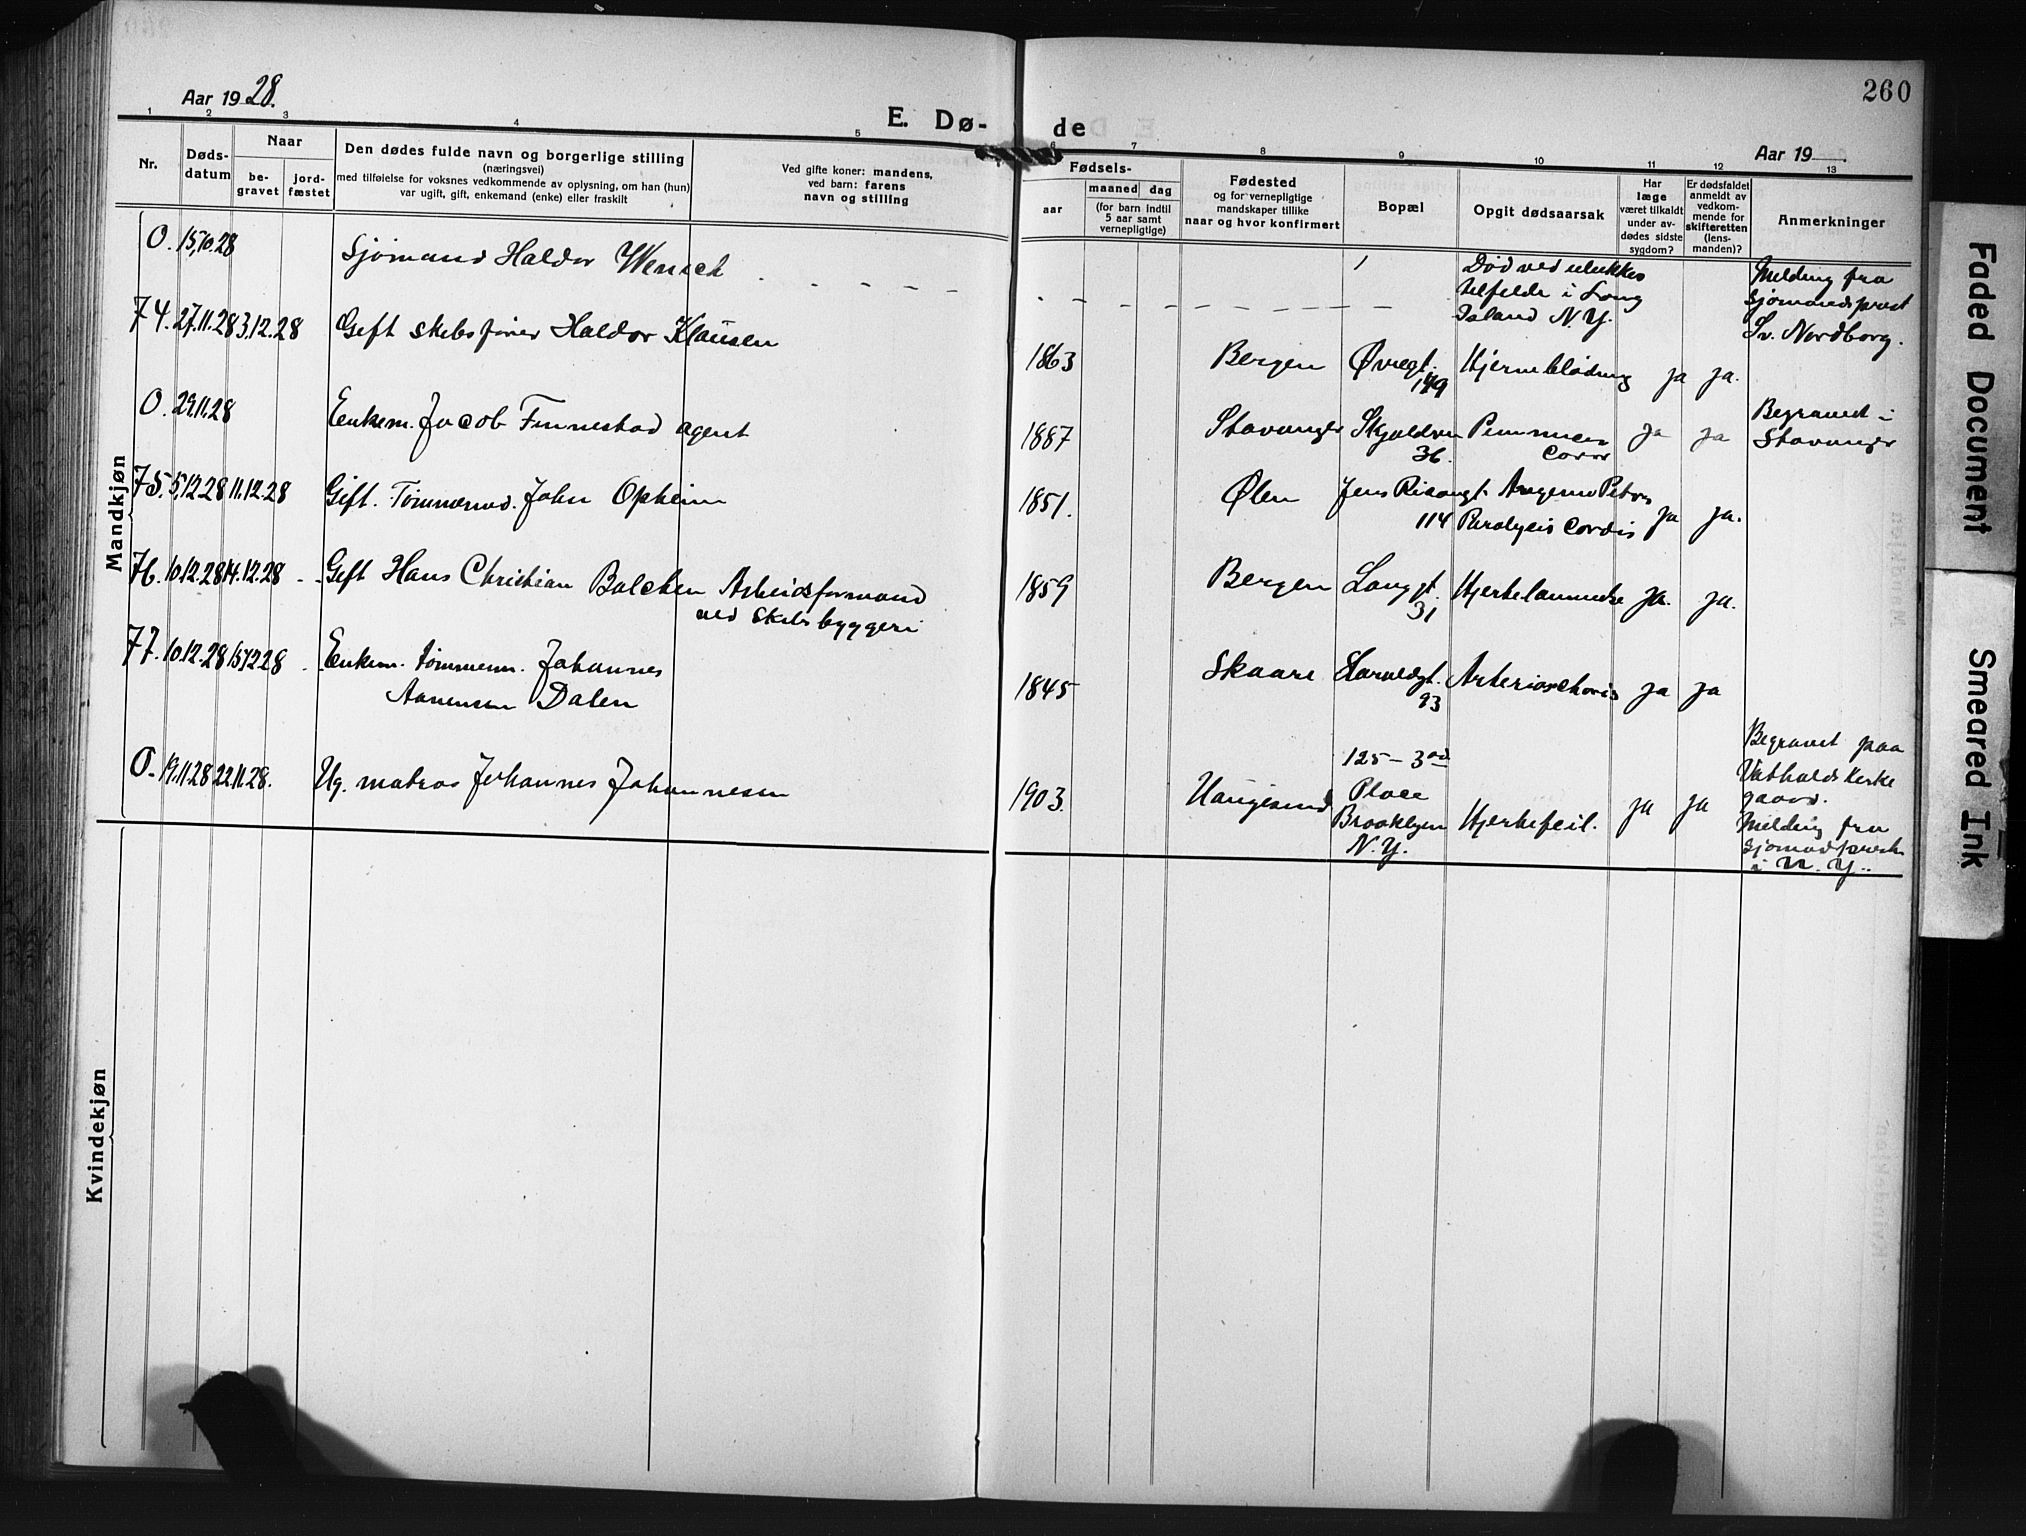 260
Aar 1928.
E. Dø- de
Aar 19
1 2 3 4 5 6 7 8 9 10 11 12 13
Nr.
Døds-
datum
Naar
be-
gravet
jord-
fæstet
Den dødes fulde navn og borgerlige stilling
(næringsvei)
med tilføielse for voksnes vedkommende av oplysning, om han (hun)
var ugift, gift, enkemand (enke) eller fraskilt
Ved gifte koner: mandens,
ved barn: farens
navn og stilling
Fødsels-
aar
maaned dag
(for barn indtil
5 aar samt
vernepligtige)
Fødested
og for vernepligtige
mandskaper tillike
naar og hvor konfirmert
Bopæl
Opgit dødsaarsak
Har
læge
været tilkaldt
under av-
dødes sidste
sygdom?
Er dødsfaldet
anmeldt av
vedkom-
mende for
skifteretten
(lens-
manden)?
Anmerkninger
Mandkjøn
O. 15.10.28 Sjømand Haldor Wensch
Død ved ulukkes
tilfelde i Long
Island N.Y.
Melding fra
Sjømandsprest
Sv. Nordborg.
74. 27.11.28 3.12.28 Gift skibsfører Haldor Klausen 1863 Bergen Øvregt. Hjerneblødning ja ja.
149
O. 29.11.28 Enkem. Jacob Finnestad agent 1887 Stavanger Skjoldvn ja ja
36.
Begravet i
Stavanger
75. 5.12.28 11.12.28 Gift. Tømmermd. John Opheim 1851. Ølen Jens Risøngt. ja ja.
114 Paralysis Cordis
76. 10.12.28 14.12.28 Gift Hans Christian Balchen Arbeidsformand 1859 Bergen Langgt. Hjertelammelse ja. ja.
ved Skibsbyggeri
31
77. 10.12.28 15.12.28 Enkem. tømmerm. Johannes
Aanensen Dalen
1845 Skaare Haraldgt. ja ja
93
O. 19.11.28 22.11.28. Ug. matros Johannes Johannesen 1903. Haugesund
125 – 3rd
Place
Brooklyn
N.Y.
Hjertefeil. ja ja
Begravet paa
kirke
gaard.
Melding fra
Sjømandsprest
i N.Y.
Kvindekjøn
Faded Document
Smeared Ink